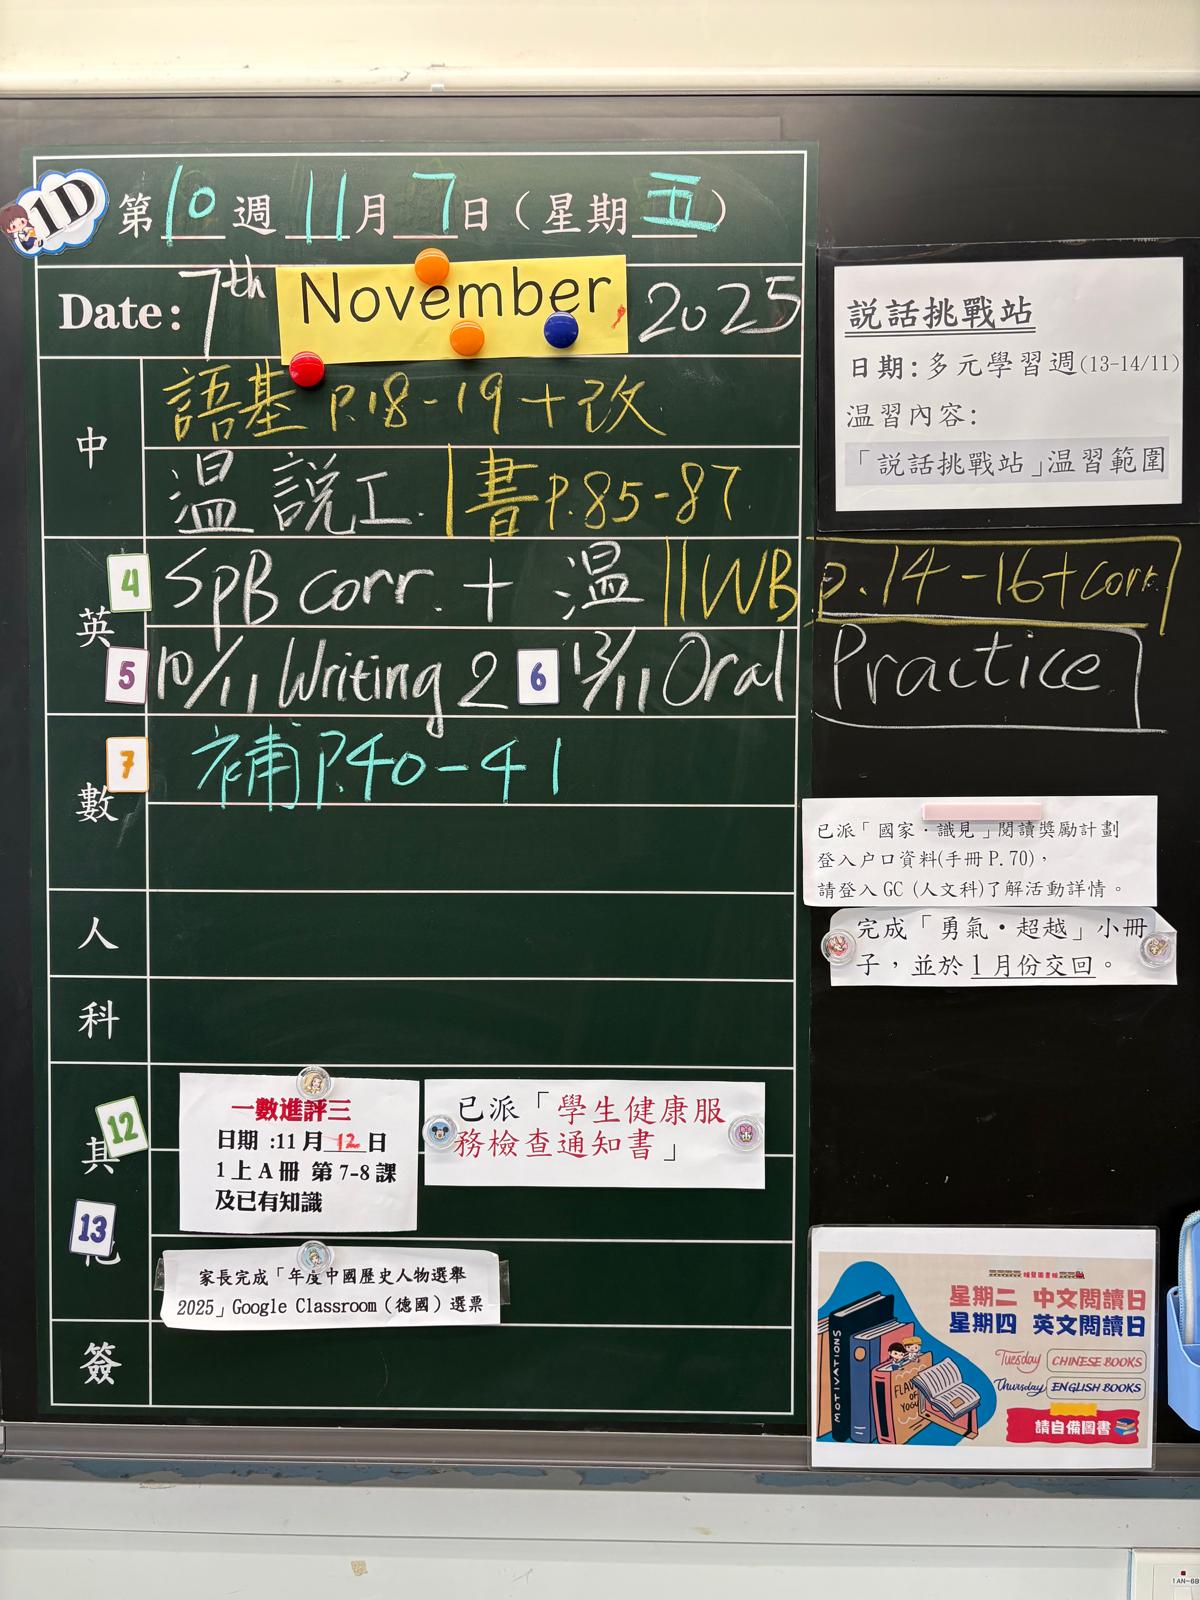 1D
第10週 11月 7日(星期五)
Date: 7th November 2025
中
語基 P.18-19+改
温 說工. 書P.85-87
英
4 SpB corr. + 温 WB p.14-16+corr.
5 10/11 Writing 2 6 13/11 Oral Practice
數
7 補P.40-41
人
科
其他
12
13
一數進評三
日期 :11月12日
1上A冊 第7-8課
及已有知識
已派「學生健康服
務檢查通知書」
家長完成「年度中國歷史人物選舉
2025」Google Classroom(德國)選票
簽
説話挑戰站
日期:多元學習週(13-14/11)
温習內容:
「説話挑戰站」温習範圍
已派「國家·識見」閱讀獎勵計劃
登入户口資料(手冊P.70),
請登入GC (人文科)了解活動詳情。
完成「勇氣·超越」小冊
子,並於1月份交回。
星期二 中文閱讀日
星期四 英文閱讀日
Tuesday CHINESE BOOKS
Thursday ENGLISH BOOKS
請自備圖書
MOTIVATIONS
1AN-6B